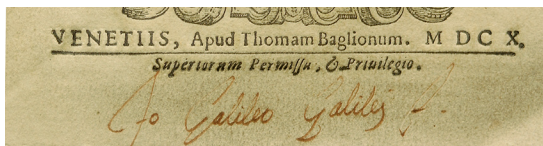 VENETIIS, Apud Thomam Baglionum. M D C X.
Superiorum Permissu, & Priuilegio.
Io Galileo Galilei f.